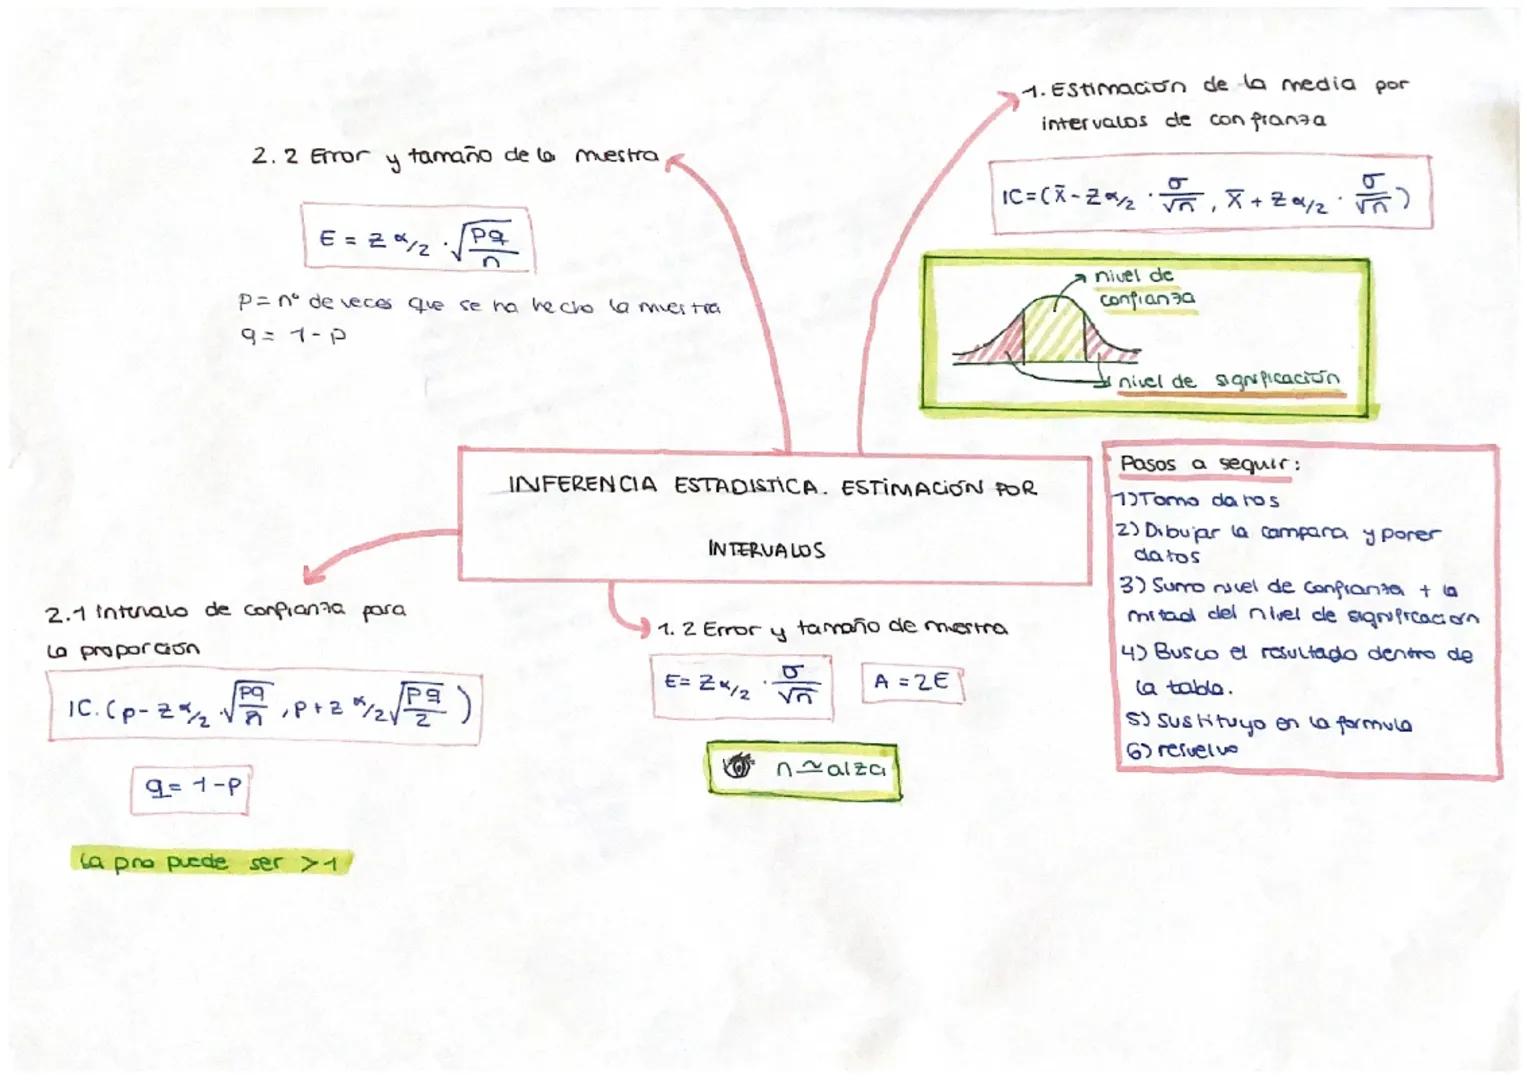 1. Estimación de la media por
intervalos de confianza
IC=(x̄-Zα/2 · σ/√n, x̄+Zα/2 · σ/√n)
nivel de
confianza
nivel de significación
2.2 Error y tamaño de la muestra
E = Zα/2 · √(pq/n)
p = nº de veces que se ha hecho la muestra
q = 1-p
INFERENCIA ESTADISTICA. ESTIMACIÓN POR
INTERVALOS
Pasos a seguir:
1) Tomo datos
2) Dibujar la campana y poner
datos
3) Sumo nivel de confianza + la
mitad del nivel de significación
4) Busco el resultado dentro de
la tabla.
5) Sustituyo en la formula
6) resuelvo
2.1 Intervalo de confianza para
la proporción
IC.(p-Zα/2 · √(pq/n), p+Zα/2 √(pq/2))
q = 1-p
la p no puede ser >1
1.2 Error y tamaño de muestra
E = Zα/2 · σ/√n
A = 2E
n ≃ alza